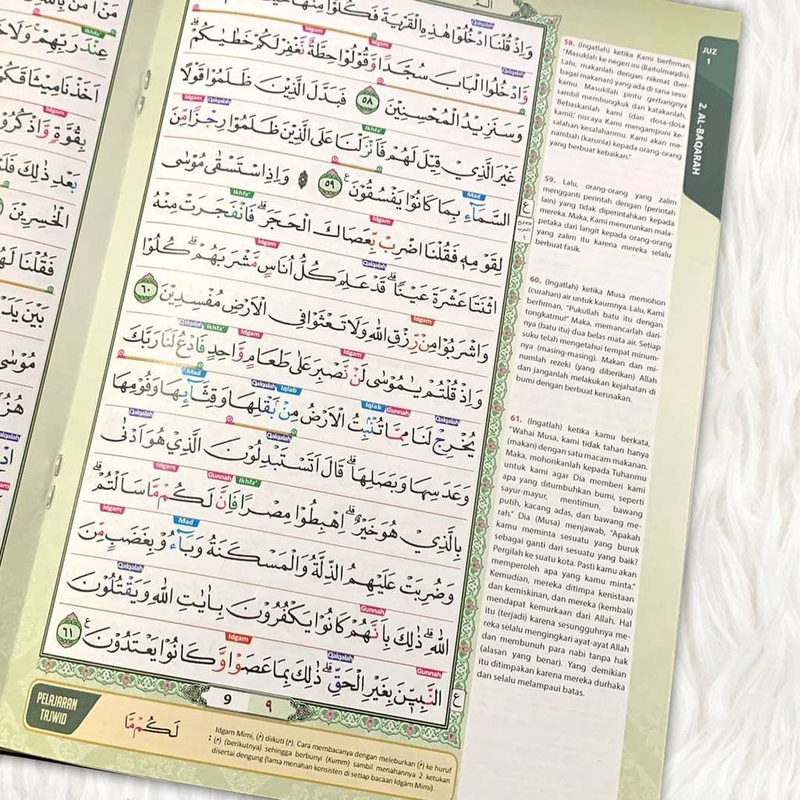 وَاِذْ قُلْنَا ادْخُلُوْا هٰذِهِ الْقَرْيَةَ فَكُلُوْا مِنْهَا
وَّادْخُلُوا الْبَابَ سُجَّدًا وَّقُوْلُوْا حِطَّةٌ نَّغْفِرْ لَكُمْ خَطٰيٰكُمْ ۗ
وَسَنَزِيْدُ الْمُحْسِنِيْنَ ٥٨ فَبَدَّلَ الَّذِيْنَ ظَلَمُوْا قَوْلًا
غَيْرَ الَّذِيْ قِيْلَ لَهُمْ فَاَنْزَلْنَا عَلَى الَّذِيْنَ ظَلَمُوْا رِجْزًا مِّنَ
السَّمَاۤءِ بِمَا كَانُوْا يَفْسُقُوْنَ ٥٩ وَاِذِ اسْتَسْقٰى مُوْسٰى
لِقَوْمِهٖ فَقُلْنَا اضْرِبْ بِّعَصَاكَ الْحَجَرَۗ فَانْفَجَرَتْ مِنْهُ
اثْنَتَا عَشْرَةَ عَيْنًا ۗ قَدْ عَلِمَ كُلُّ اُنَاسٍ مَّشْرَبَهُمْ ۗ كُلُوْا
وَاشْرَبُوْا مِنْ رِّزْقِ اللّٰهِ وَلَا تَعْثَوْا فِى الْاَرْضِ مُفْسِدِيْنَ ٦٠
وَاِذْ قُلْتُمْ يٰمُوْسٰى لَنْ نَّصْبِرَ عَلٰى طَعَامٍ وَّاحِدٍ فَادْعُ لَنَا رَبَّكَ
يُخْرِجْ لَنَا مِمَّا تُنْۢبِتُ الْاَرْضُ مِنْۢ بَقْلِهَا وَقِثَّاۤىِٕهَا وَفُوْمِهَا
وَعَدَسِهَا وَبَصَلِهَا ۗ قَالَ اَتَسْتَبْدِلُوْنَ الَّذِيْ هُوَ اَدْنٰى
بِالَّذِيْ هُوَ خَيْرٌ ۗ اِهْبِطُوْا مِصْرًا فَاِنَّ لَكُمْ مَّا سَاَلْتُمْ ۗ
وَضُرِبَتْ عَلَيْهِمُ الذِّلَّةُ وَالْمَسْكَنَةُ وَبَاۤءُوْ بِغَضَبٍ مِّنَ
اللّٰهِ ۗ ذٰلِكَ بِاَنَّهُمْ كَانُوْا يَكْفُرُوْنَ بِاٰيٰتِ اللّٰهِ وَيَقْتُلُوْنَ
النَّبِيّٖنَ بِغَيْرِ الْحَقِّ ۗ ذٰلِكَ بِمَا عَصَوْا وَّكَانُوْا يَعْتَدُوْنَ ٦١
9 ٩
PELAJARAN
TAJWID
لَكُمْ مَّا
Idgam Mimi, (مْ) diikuti (م). Cara membacanya dengan meleburkan (مْ) ke huruf
(م) (berikutnya) sehingga berbunyi (Kumm) sambil menahannya 2 ketukan
disertai dengung (lama menahan konsisten di setiap bacaan Idgām Mimi).
JUZ
1
2. AL-BAQARAH
58. (Ingatlah) ketika Kami berfirman,
"Masuklah ke negeri ini (Baitulmaqdis).
Lalu, makanlah dengan nikmat (ber-
bagai makanan) yang ada di sana sesu-
kamu. Masukilah pintu gerbangnya
sambil membungkuk dan katakanlah,
'Bebaskanlah kami (dari dosa-dosa
kami),' niscaya Kami mengampuni ke-
salahan-kesalahanmu. Kami akan me-
nambah (karunia) kepada orang-orang
yang berbuat kebaikan."
59. Lalu, orang-orang yang zalim
mengganti perintah dengan (perintah
lain) yang tidak diperintahkan kepada
mereka. Maka, Kami menurunkan mala-
petaka dari langit kepada orang-orang
yang zalim itu karena mereka selalu
berbuat fasik.
60. (Ingatlah) ketika Musa memohon
(curahan) air untuk kaumnya. Lalu, Kami
berfirman, "Pukullah batu itu dengan
tongkatmu!" Maka, memancarlah dari-
nya (batu itu) dua belas mata air. Setiap
suku telah mengetahui tempat minum-
nya (masing-masing). Makan dan mi-
numlah rezeki (yang diberikan) Allah
dan janganlah melakukan kejahatan di
bumi dengan berbuat kerusakan.
61. (Ingatlah) ketika kamu berkata,
"Wahai Musa, kami tidak tahan hanya
(makan) dengan satu macam makanan.
Maka, mohonkanlah kepada Tuhanmu
untuk kami agar Dia memberi kami
apa yang ditumbuhkan bumi, seperti
sayur-mayur, mentimun, bawang
putih, kacang adas, dan bawang me-
rah." Dia (Musa) menjawab, "Apakah
kamu meminta sesuatu yang buruk
sebagai ganti dari sesuatu yang baik?
Pergilah ke suatu kota. Pasti kamu akan
memperoleh apa yang kamu minta."
Kemudian, mereka ditimpa kenistaan
dan kemiskinan, dan mereka (kembali)
mendapat kemurkaan dari Allah. Hal
itu (terjadi) karena sesungguhnya me-
reka selalu mengingkari ayat-ayat Allah
dan membunuh para nabi tanpa hak
(alasan yang benar). Yang demikian
itu ditimpakan karena mereka durhaka
dan selalu melampaui batas.